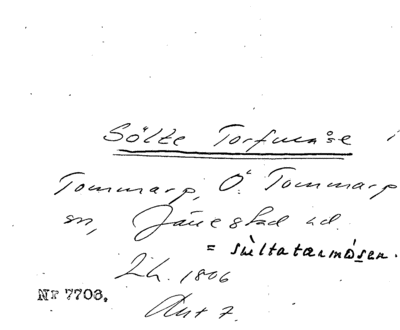 Sölte Torfmåse i
Tommarp, Ö. Tommarp
sn, Järrestad hd.
= sùltatærmósen.
Lh. 1806
Akt 7.
Nr 7703.